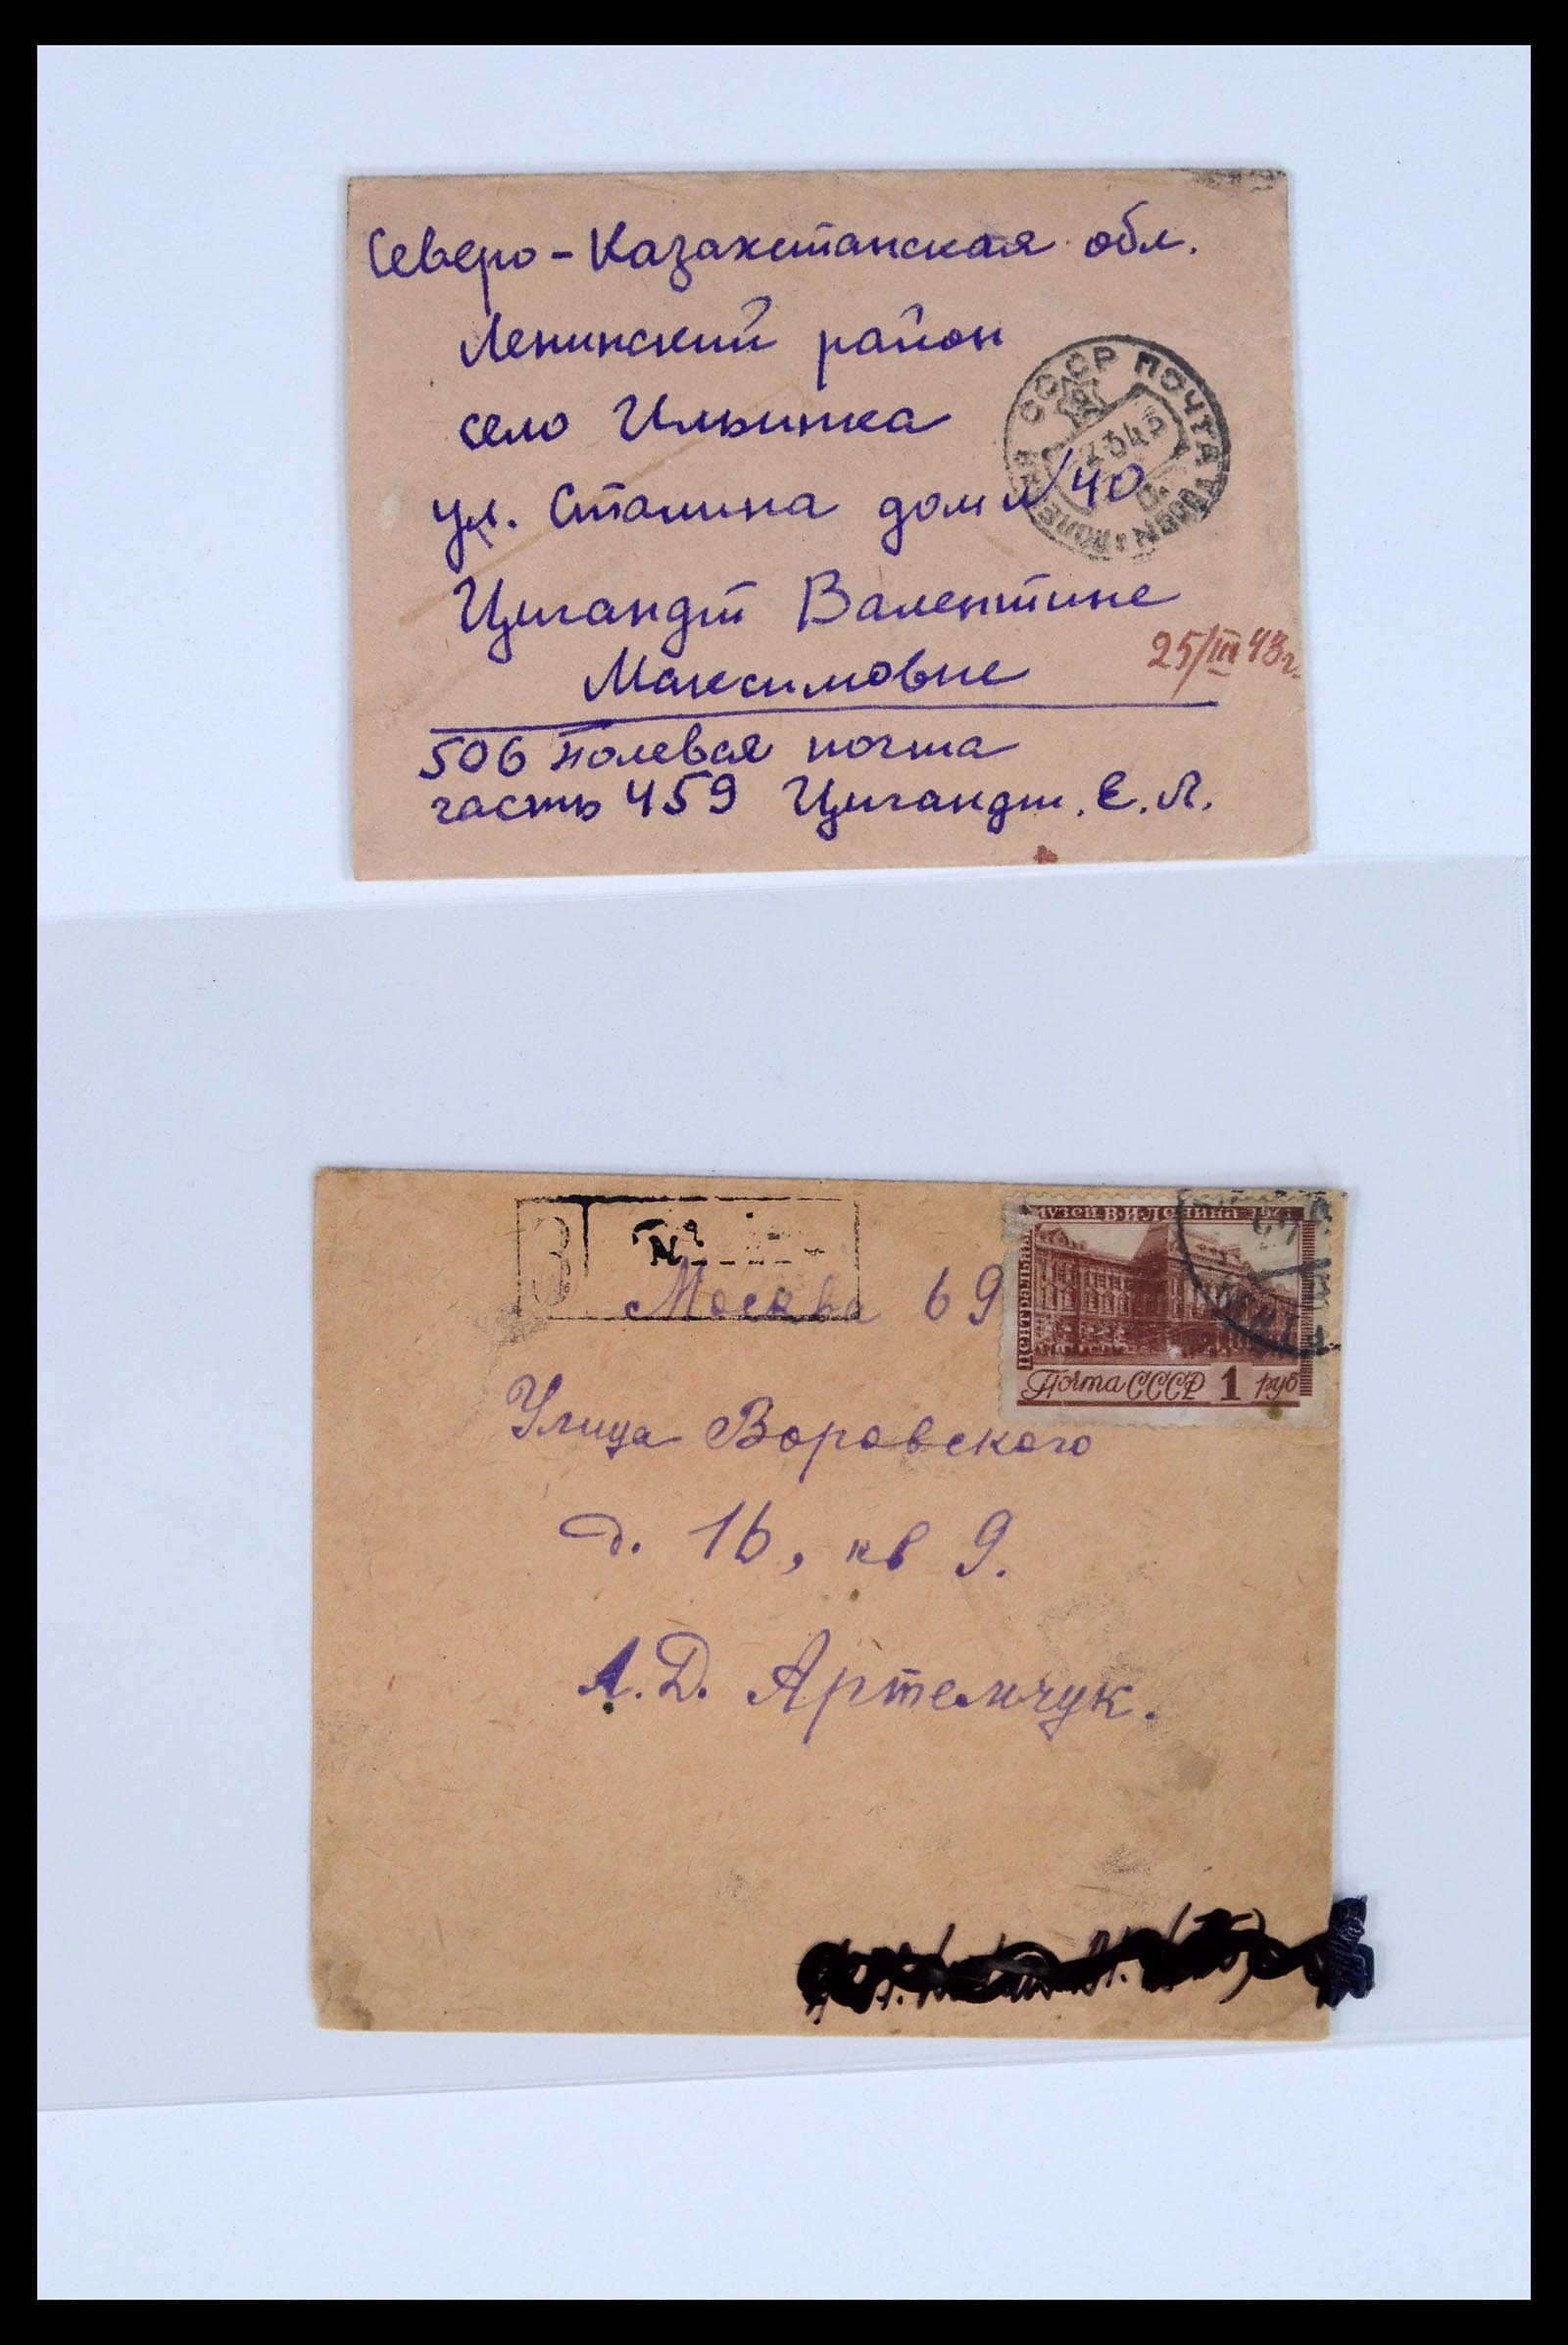 Северо-Казахстанская обл.
Ленинский район
село Ильинка
СССР ПОЧТА
ул. Сталина дом № 40
Цигандт Валентине
25/III 43г.
Максимовне
506 полевая почта
часть 459 Цигандт. Е. Л.
З
№
МУЗЕЙ В.И.ЛЕНИНА
ЦЕНТРАЛЬНЫЙ
Москва 69
Почта СССР 1 руб
Улица Воровского
д. 16, кв 9.
А.Д. Артемчук.